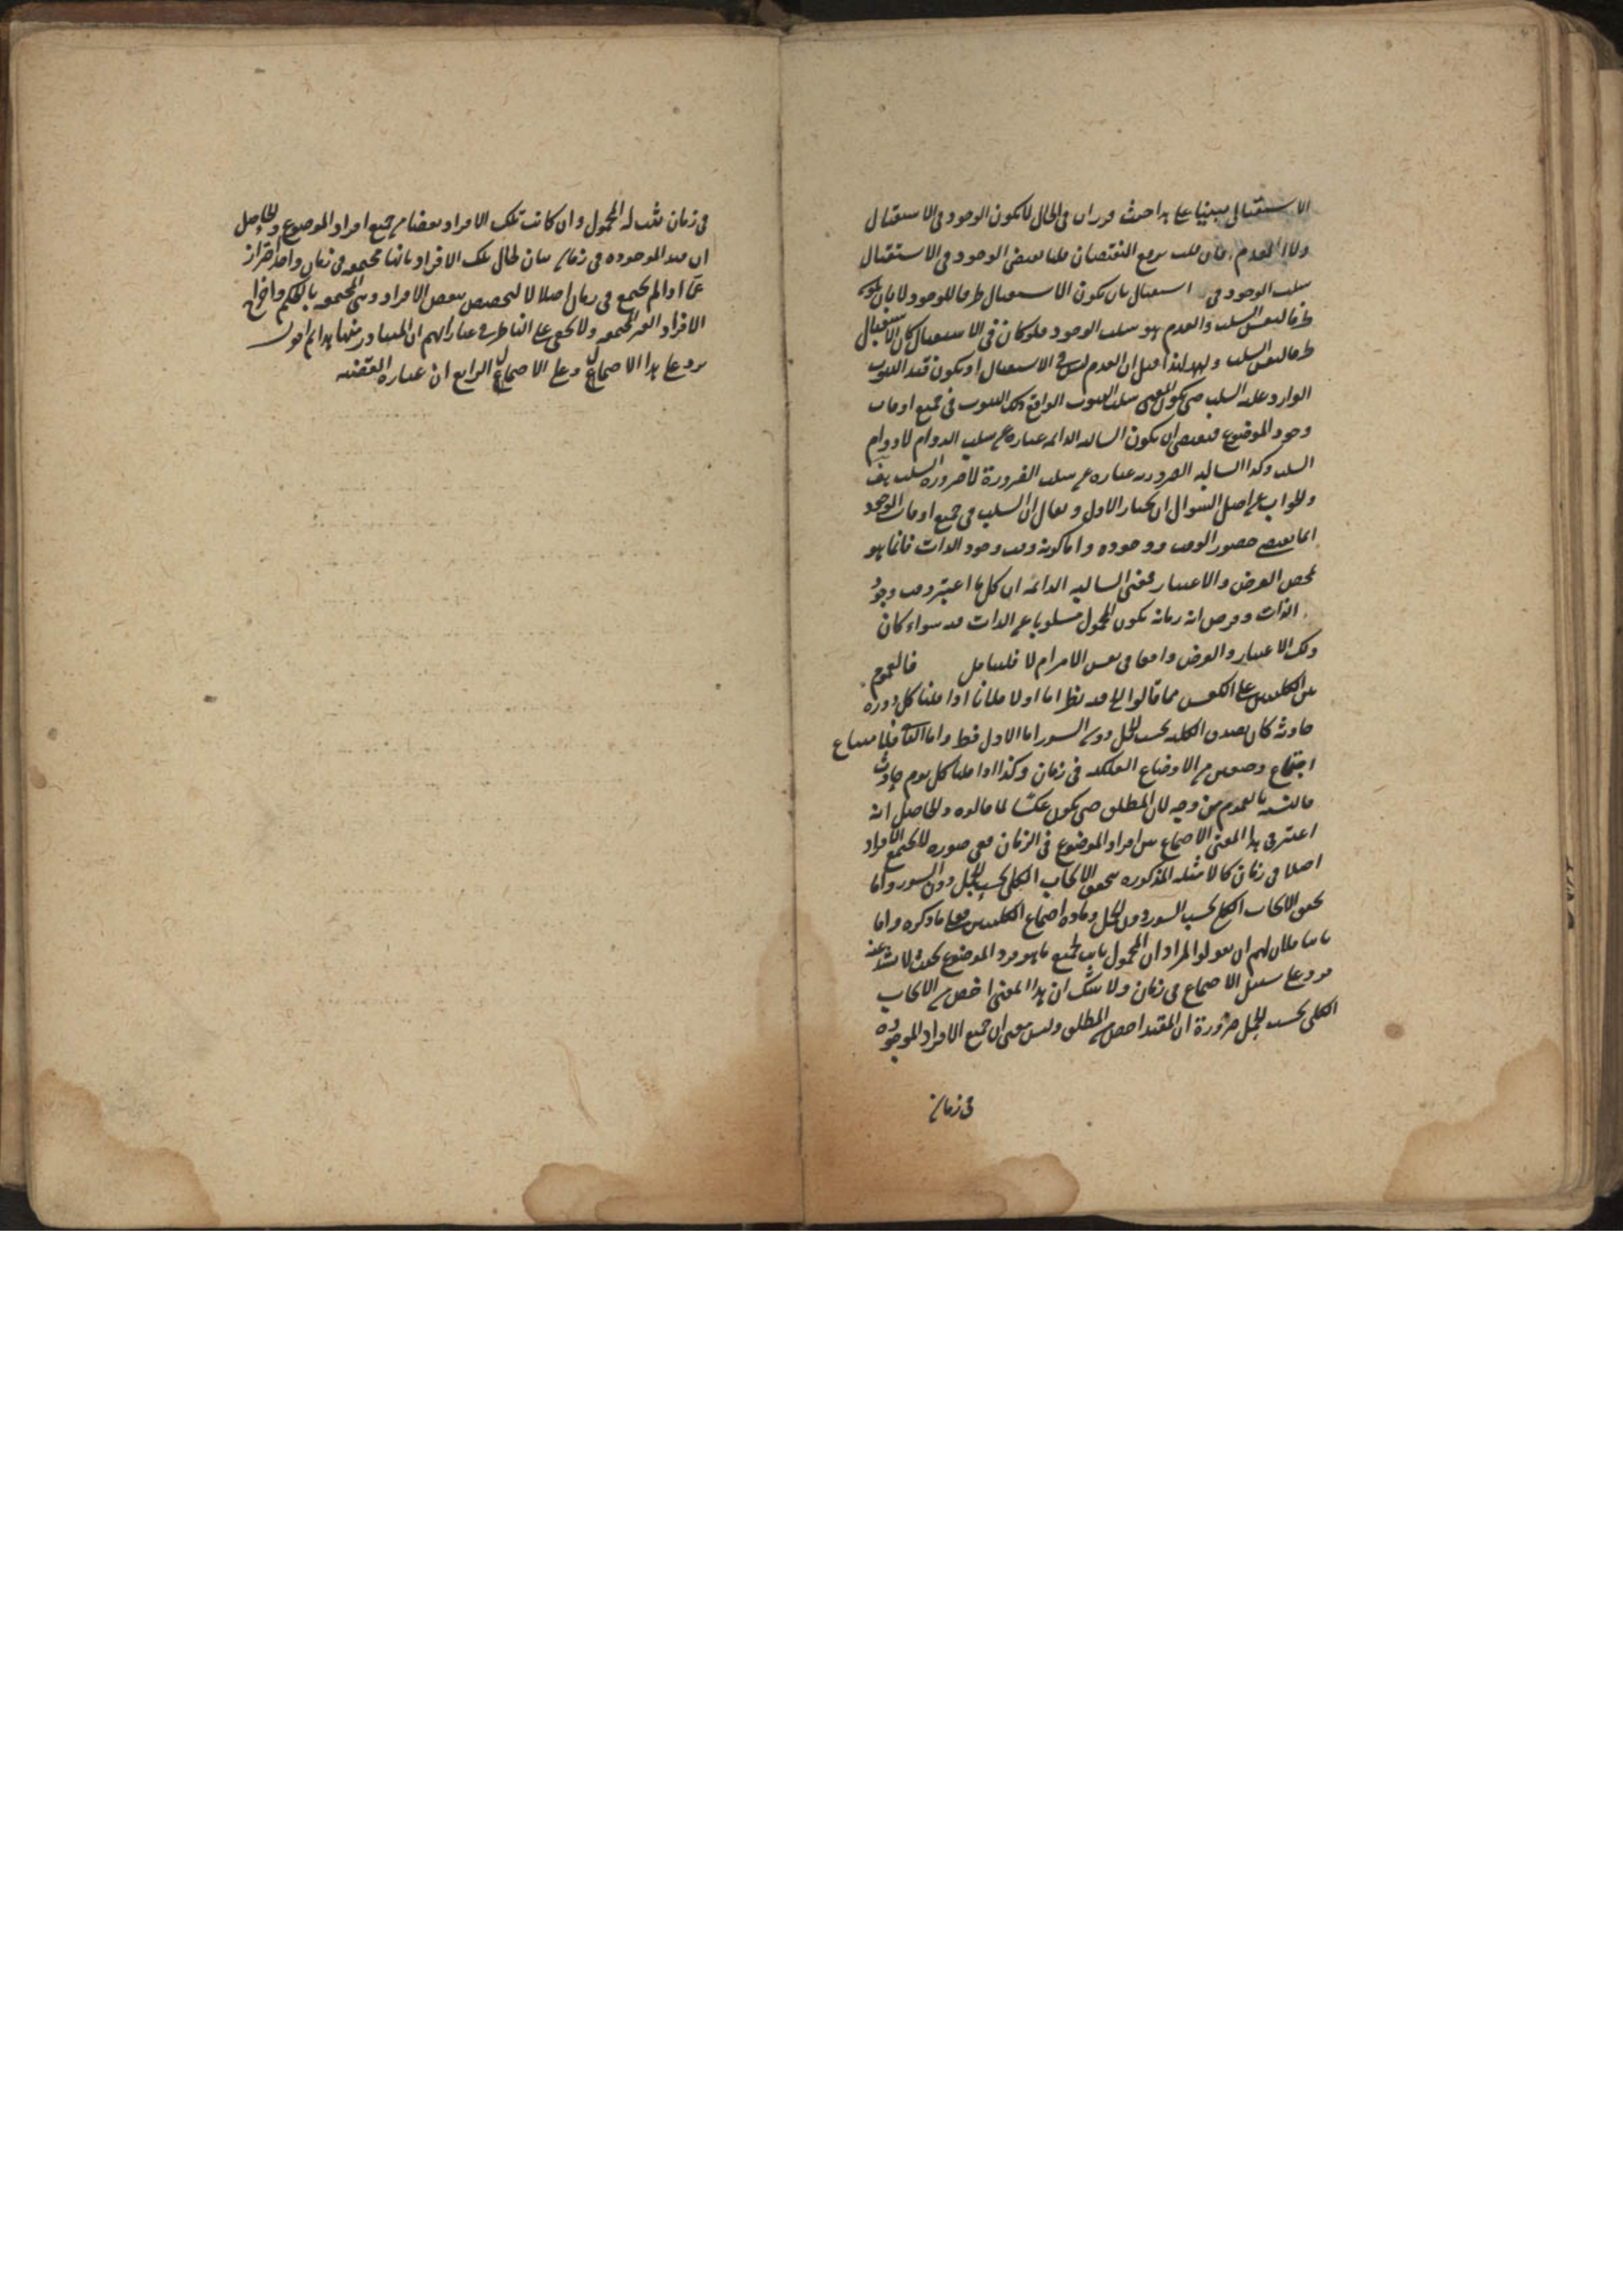 الاستقبالى مبنيا على هذا حيث قد ران فى الحال لا يكون الوجود فى الاستقبال
ولا العدم فان قلت يرفع النقيضان قلنا نقيض الوجود فى الاستقبال
سلب الوجود فى استقبال بان يكون الاستقبال ظرفا للوجود لا بان يكون
ظرفا لنفس السلب والعدم هو سلب الوجود فلو كان فى الاستقبال كان الاستقبال
ظرفا لنفس السلب ولهذا قيل ان العدم ليس فى الاستقبال او يكون قيد الثبوت
الوارد عليه السلب حتى يكون المعنى سلب الثبوت الواقع ذلك الثبوت فى جميع اوقات
وجود الموضوع فيقتضى ان يكون السالبة الدائمة عبارة عن سلب الدوام لا دوام
السلب وكذا السالبة الضرورية عبارة عن سلب الضرورة لا ضرورة السلب
والجواب عن اصل السؤال ان يختار الاول ويقال ان السلب فى جميع اوقات الوجود
انما يقتضى حضور الوقت ووجوده واما كونه وقت وجود الذات فانما هو
بمحض الفرض والاعتبار فمعنى السالبة الدائمة ان كل ما اعتبر وقت وجود
الذات وفرض انه زمانه يكون المحمول مسلوبا عن الذات فيه سواء كان
ذلك الاعتبار والفرض واقعا فى نفس الامر ام لا فليتامل فالعموم
بين الكليتين على العكس مما قالوا الخ فيه نظر اما اولا فلانا اذا قلنا كل دورة
حادثة كان يصدق الكلية بحسب الحمل دون السور اما الاول فظ واما الثانى فلامتناع
اجتماع وصفين من الاوضاع الفلكية فى زمان وكذا اذا قلنا كل يوم حادث
فالنسبة بالعموم من وجه لا بالمطلق حتى يكون عكسا لما قالوه والحاصل انه
اعتبر فى هذا المعنى الاجتماع بين افراد الموضوع فى الزمان ففى صورة لا يجتمع الافراد
اصلا فى زمان كالامثلة المذكورة يتحقق الايجاب الكلى بحسب الحمل دون السور واما
تحقق الايجاب الكلى بحسب السور دون الحمل ومادة اجتماع الكليتين فعلى ما ذكره واما
ثانيا فلان لهم ان يقولوا المراد ان المحمول ثابت لجميع ما هو فرد الموضوع بحيث لا يشذ عنه
فرد على سبيل الاجتماع فى زمان ولا شك ان هذا المعنى اخص من الايجاب
الكلى بحسب الحمل ضرورة ان المقيد اخص من المطلق وليس معنى ان جميع الافراد الموجودة
فى زمان
فى زمان يثبت له المحمول وان كانت تلك الافراد بعضا من جميع افراد الموضوع والحاصل
ان قيد الموجودة فى زمان بيان لحال تلك الافراد بانها مجتمعة فى زمان واحد احتراز
عما اذا لم يجتمع فى زمان اصلا لا لتخصيص بعض الافراد وهى المجتمعة بالحكم واخراج
الافراد الغير المجتمعة ولا يخفى على الناظر فى عباراتهم ان المتبادر منها هذا ثم اقول
يرد على هذا الاحتمال وعلى الاحتمال الرابع ان عبارة القضية